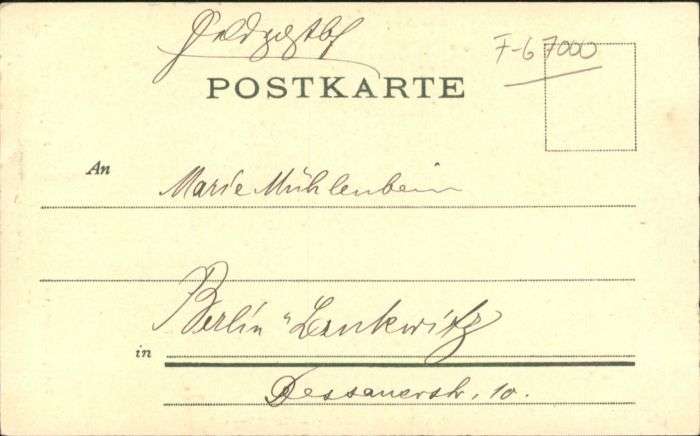 Feldpostbf
F-b 7000
POSTKARTE
An Marie Mühlenbein
in Berlin "Lankwitz
Dessauerstr. 10.